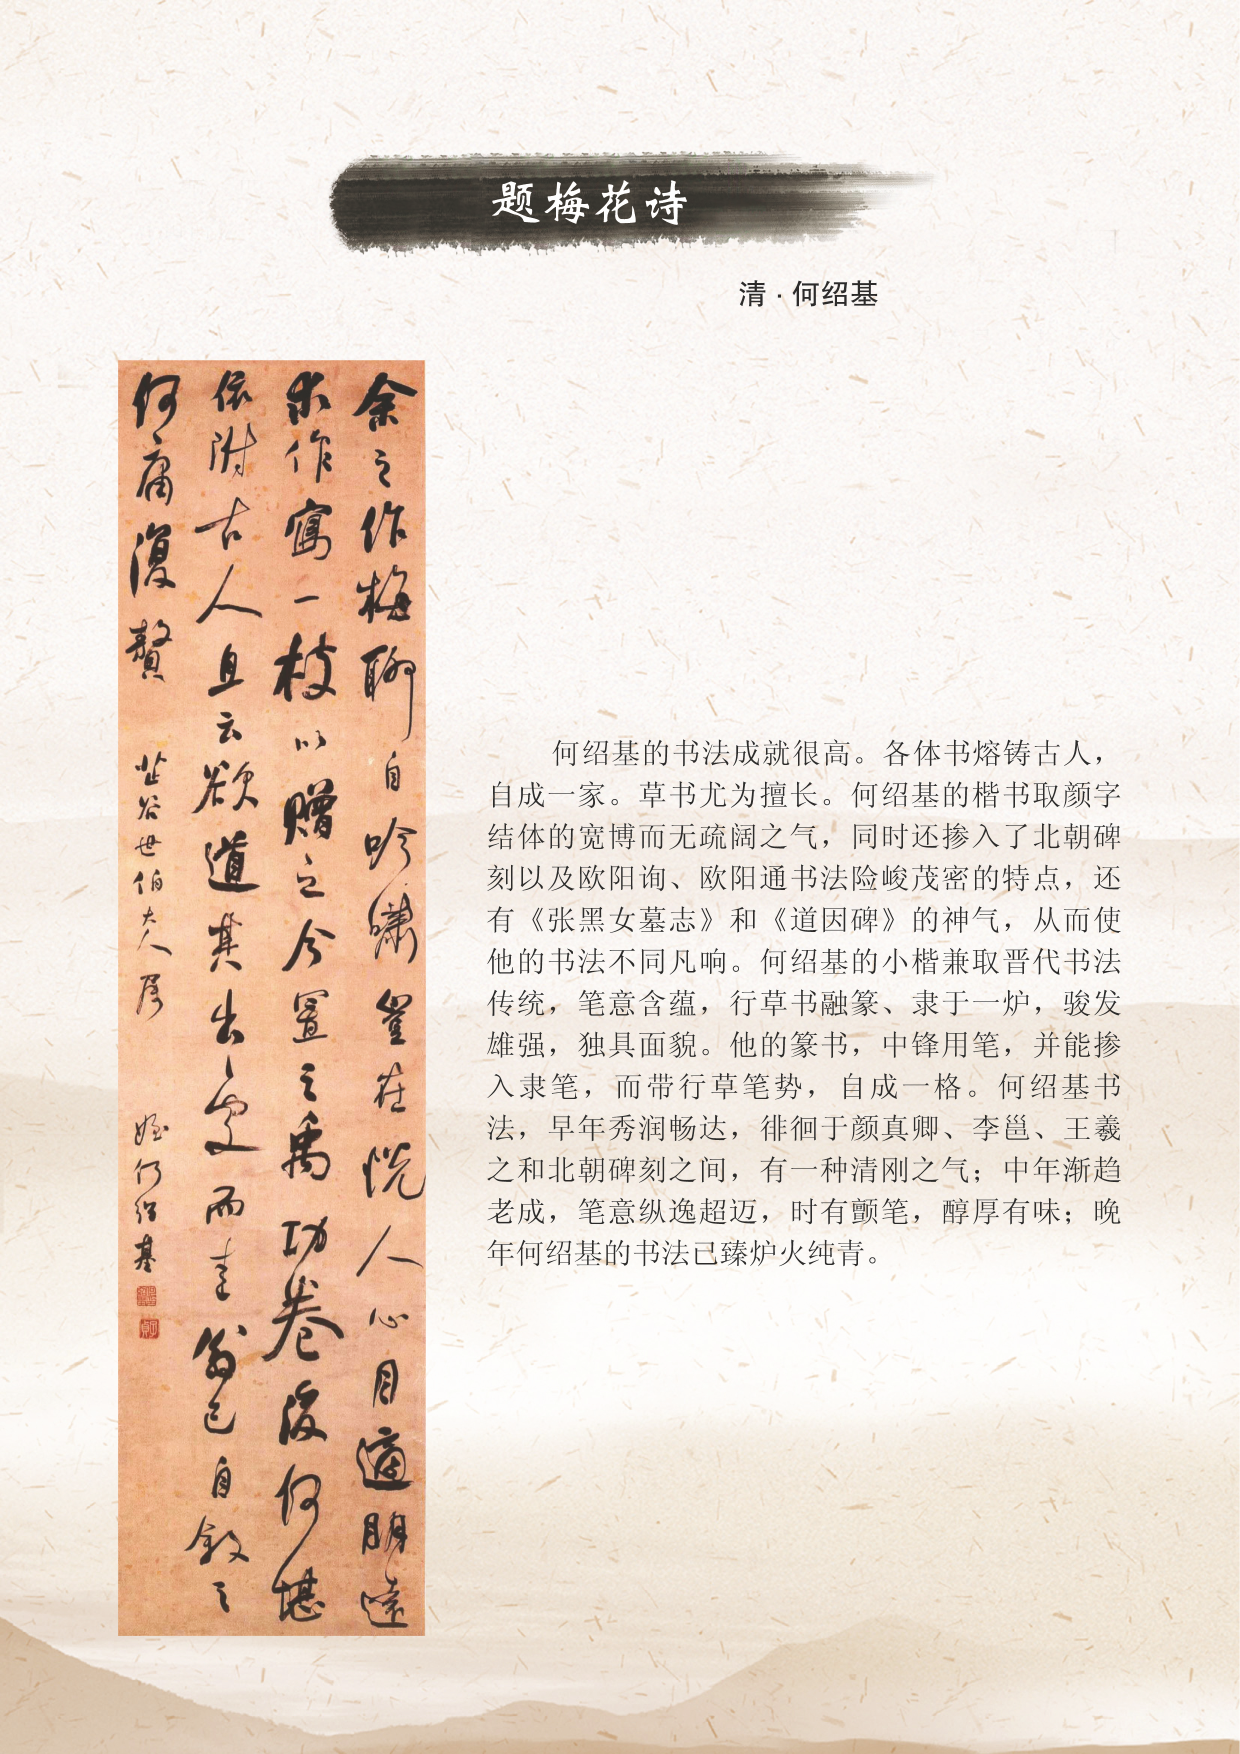 题梅花诗
清·何绍基
余之作梅聊自吟啸岂在悦人心目适明远
索作写一枝以赠之今置之禹功卷后何堪
依附古人且云欲道其出处而老翁已自叙之
何庸复赘
芷谷世伯大人属
侄何绍基
何绍基的书法成就很高。各体书熔铸古人，
自成一家。草书尤为擅长。何绍基的楷书取颜字
结体的宽博而无疏阔之气，同时还掺入了北朝碑
刻以及欧阳询、欧阳通书法险峻茂密的特点，还
有《张黑女墓志》和《道因碑》的神气，从而使
他的书法不同凡响。何绍基的小楷兼取晋代书法
传统，笔意含蕴，行草书融篆、隶于一炉，骏发
雄强，独具面貌。他的篆书，中锋用笔，并能掺
入隶笔，而带行草笔势，自成一格。何绍基书
法，早年秀润畅达，徘徊于颜真卿、李邕、王羲
之和北朝碑刻之间，有一种清刚之气；中年渐趋
老成，笔意纵逸超迈，时有颤笔，醇厚有味；晚
年何绍基的书法已臻炉火纯青。